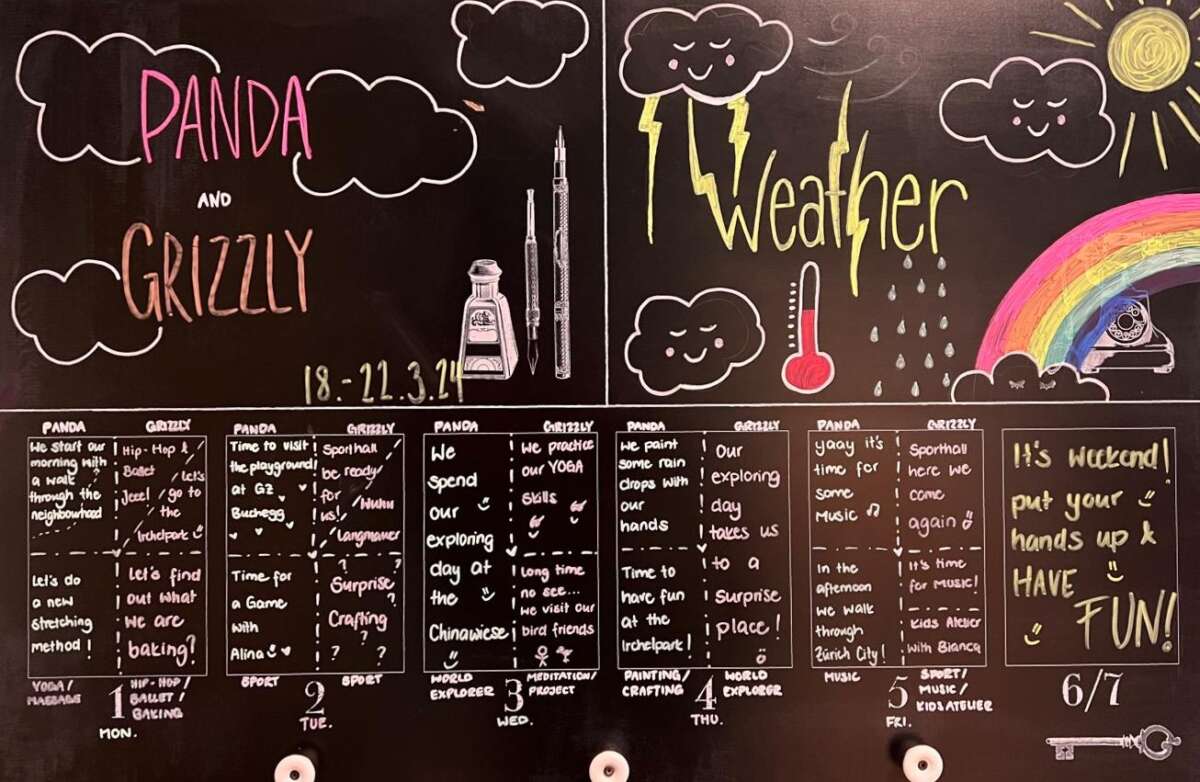 PANDA
AND
GRIZZLY
18.-22.3.24
Weather
PANDA
We start our
morning with
a walk
through the
neighbourhood
Let's do
a new
stretching
method!
YOGA/
MASSAGE
GRIZZLY
Hip-Hop &
Ballet
Jeee! / Let's
go to
the
Irchelpark
Let's find
out what
we are
baking?
HIP-HOP/
BALLET/
BAKING
1
MON.
PANDA
Time to visit
the playground
at GZ
Buchegg
Time for
a Game
with
Alina
SPORT
GRIZZLY
Sporthall
be ready
for
us! / Wuhu
Langmauer
? ?
Surprise
?
Crafting
?
? ?
SPORT
2
TUE.
PANDA
We
spend
our
exploring
day at
the
Chinawiese
WORLD
EXPLORER
GRIZZLY
We practice
our YOGA
skills
Long time
no see...
we visit our
bird friends
MEDITATION/
PROJECT
3
WED.
PANDA
We paint
some rain
drops with
our
hands
Time to
have fun
at the
Irchelpark!
PAINTING/
CRAFTING
GRIZZLY
Our
exploring
day
takes us
to a
Surprise
place!
WORLD
EXPLORER
4
THU.
PANDA
yaay it's
time for
some
Music
In the
afternoon
we walk
through
Zürich City!
MUSIC
GRIZZLY
Sporthall
here we
come
again
It's time
for MUSIC!
Kids Atelier
with Bianca
SPORT/
MUSIC/
KIDSATELIER
5
FRI.
It's weekend!
put your
hands up &
HAVE
FUN!
6/7